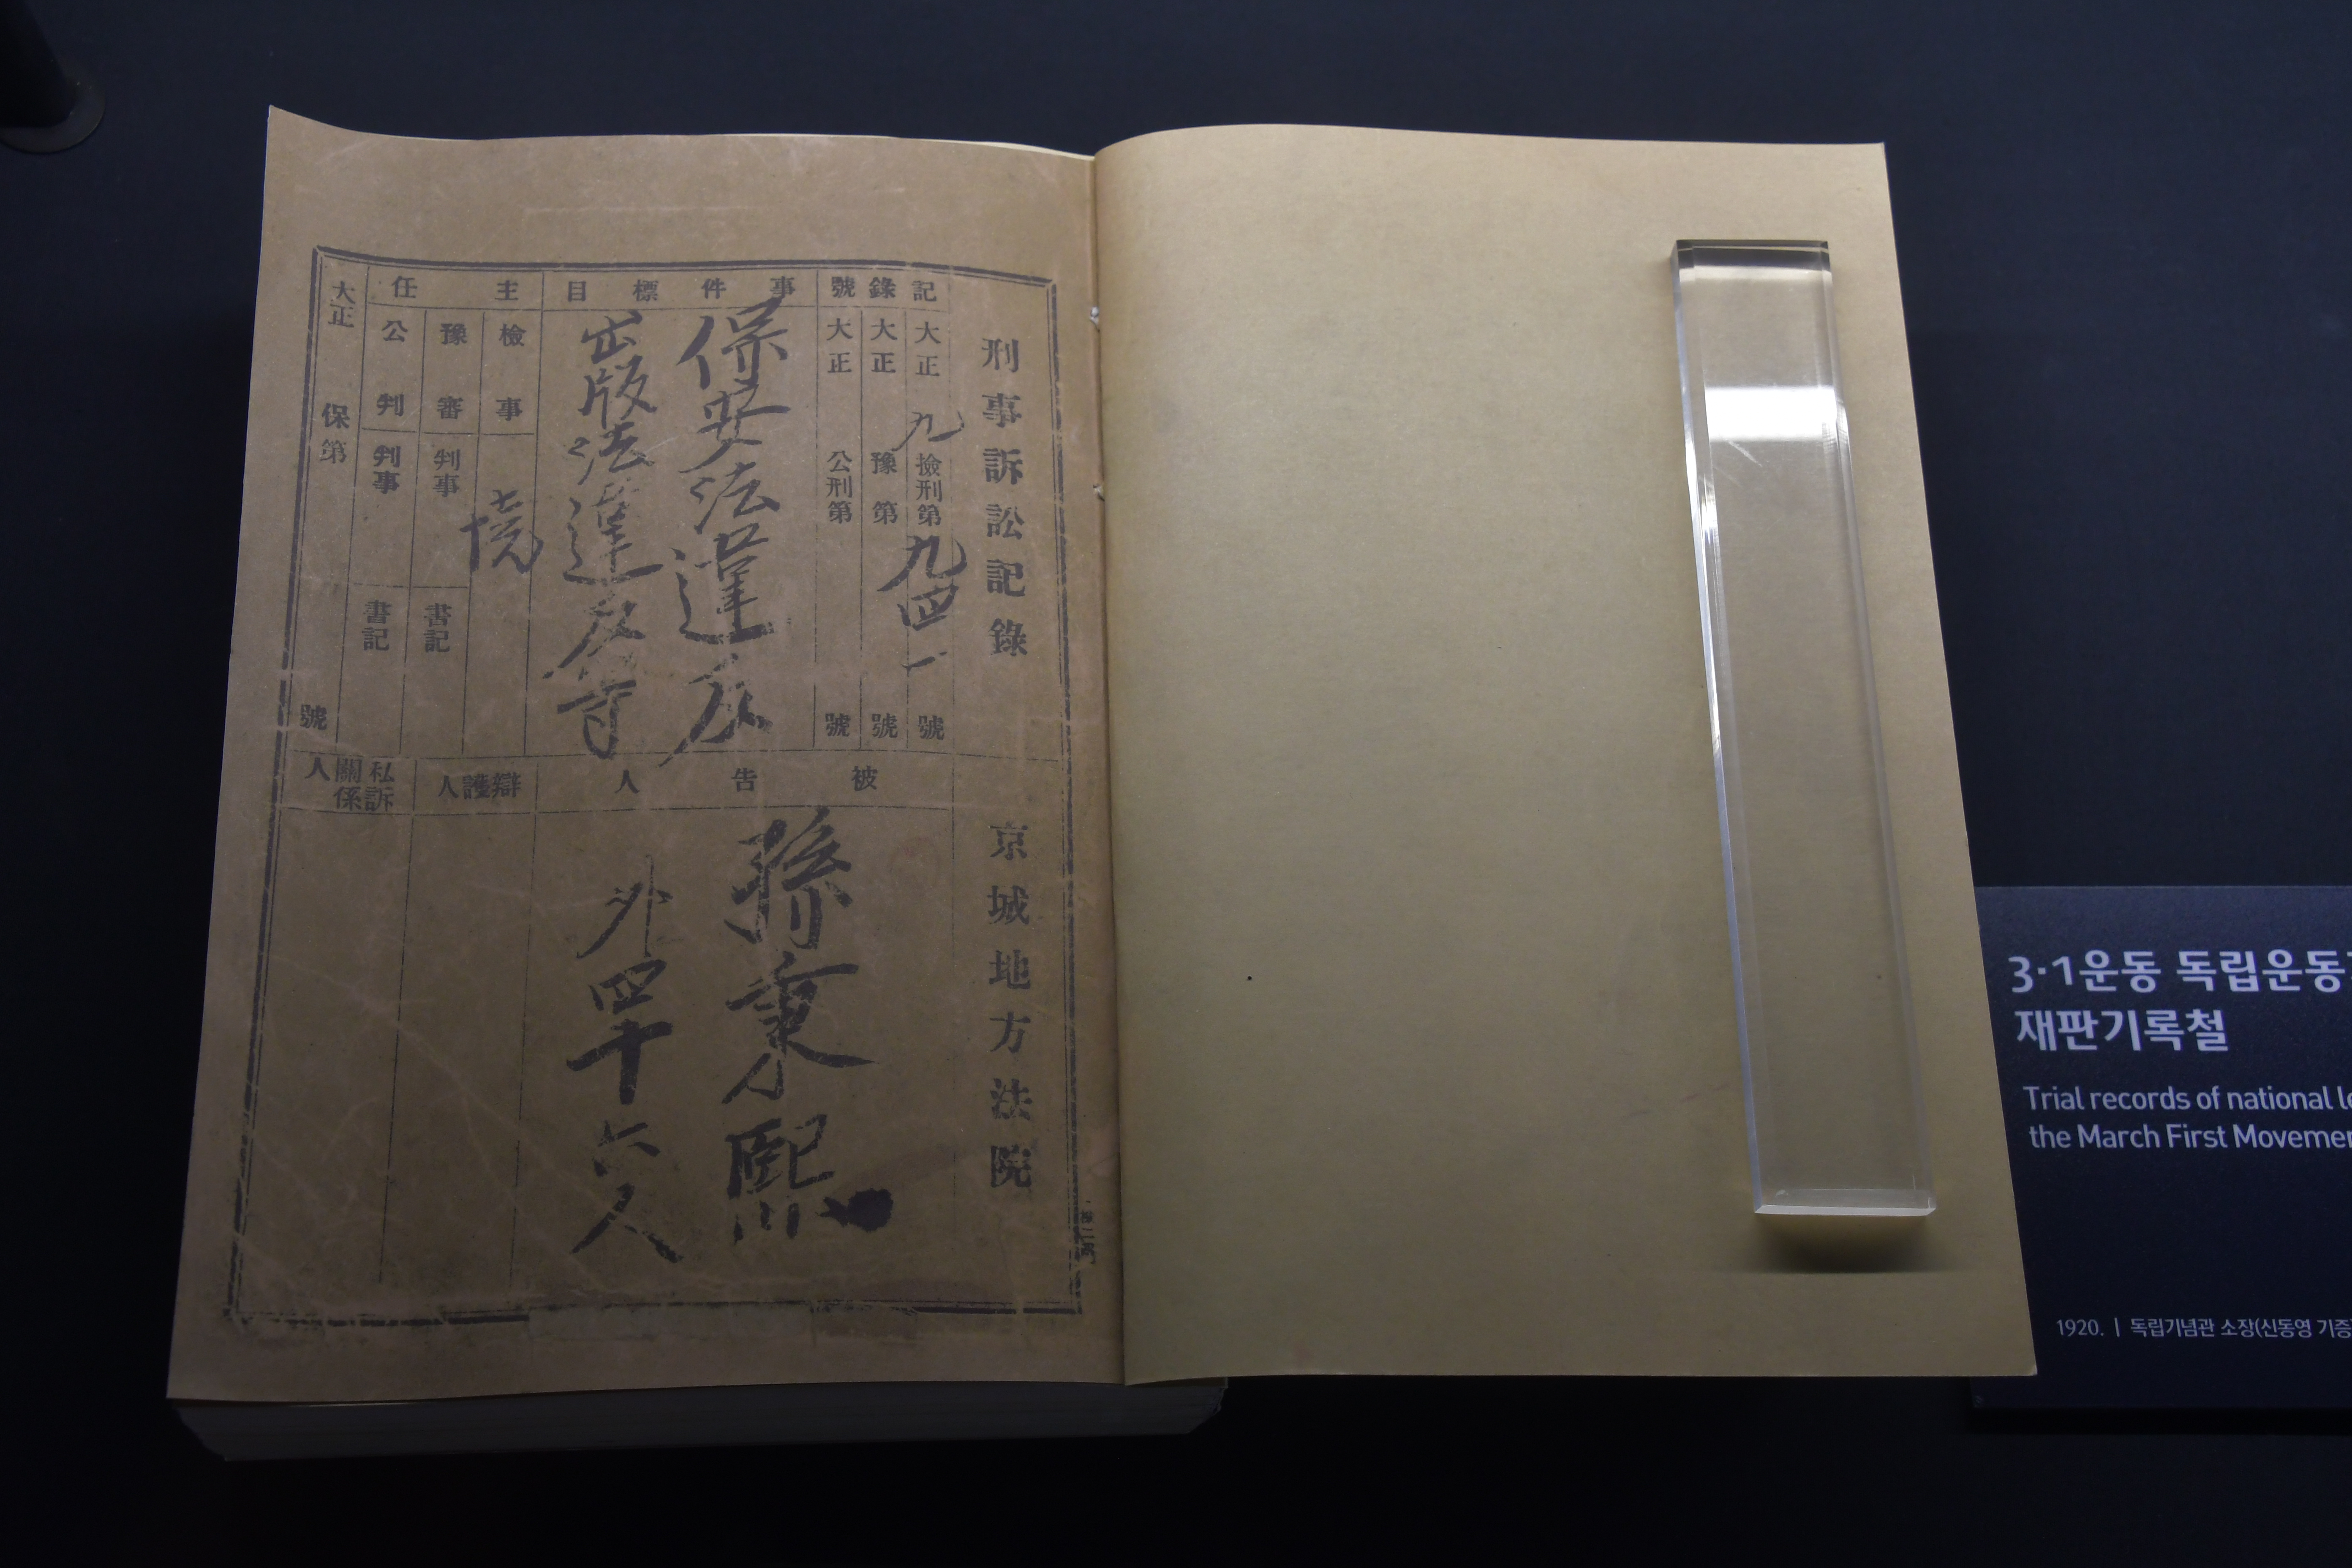 刑事訴訟記錄
京城地方法院
記錄號
大正九檢刑第九四一號
大正 豫第 號
大正 公刑第 號
事件標目
保安法違反
出版法違反等
主任
檢事 境
豫審 判事 書記
公判 判事 書記
大正 保第 號
被告人
孫秉熙
外四十六人
辯護人
私訴關係人
3·1운동 독립운동
재판기록철
Trial records of national le
the March First Movemen
1920. | 독립기념관 소장(신동영 기증)